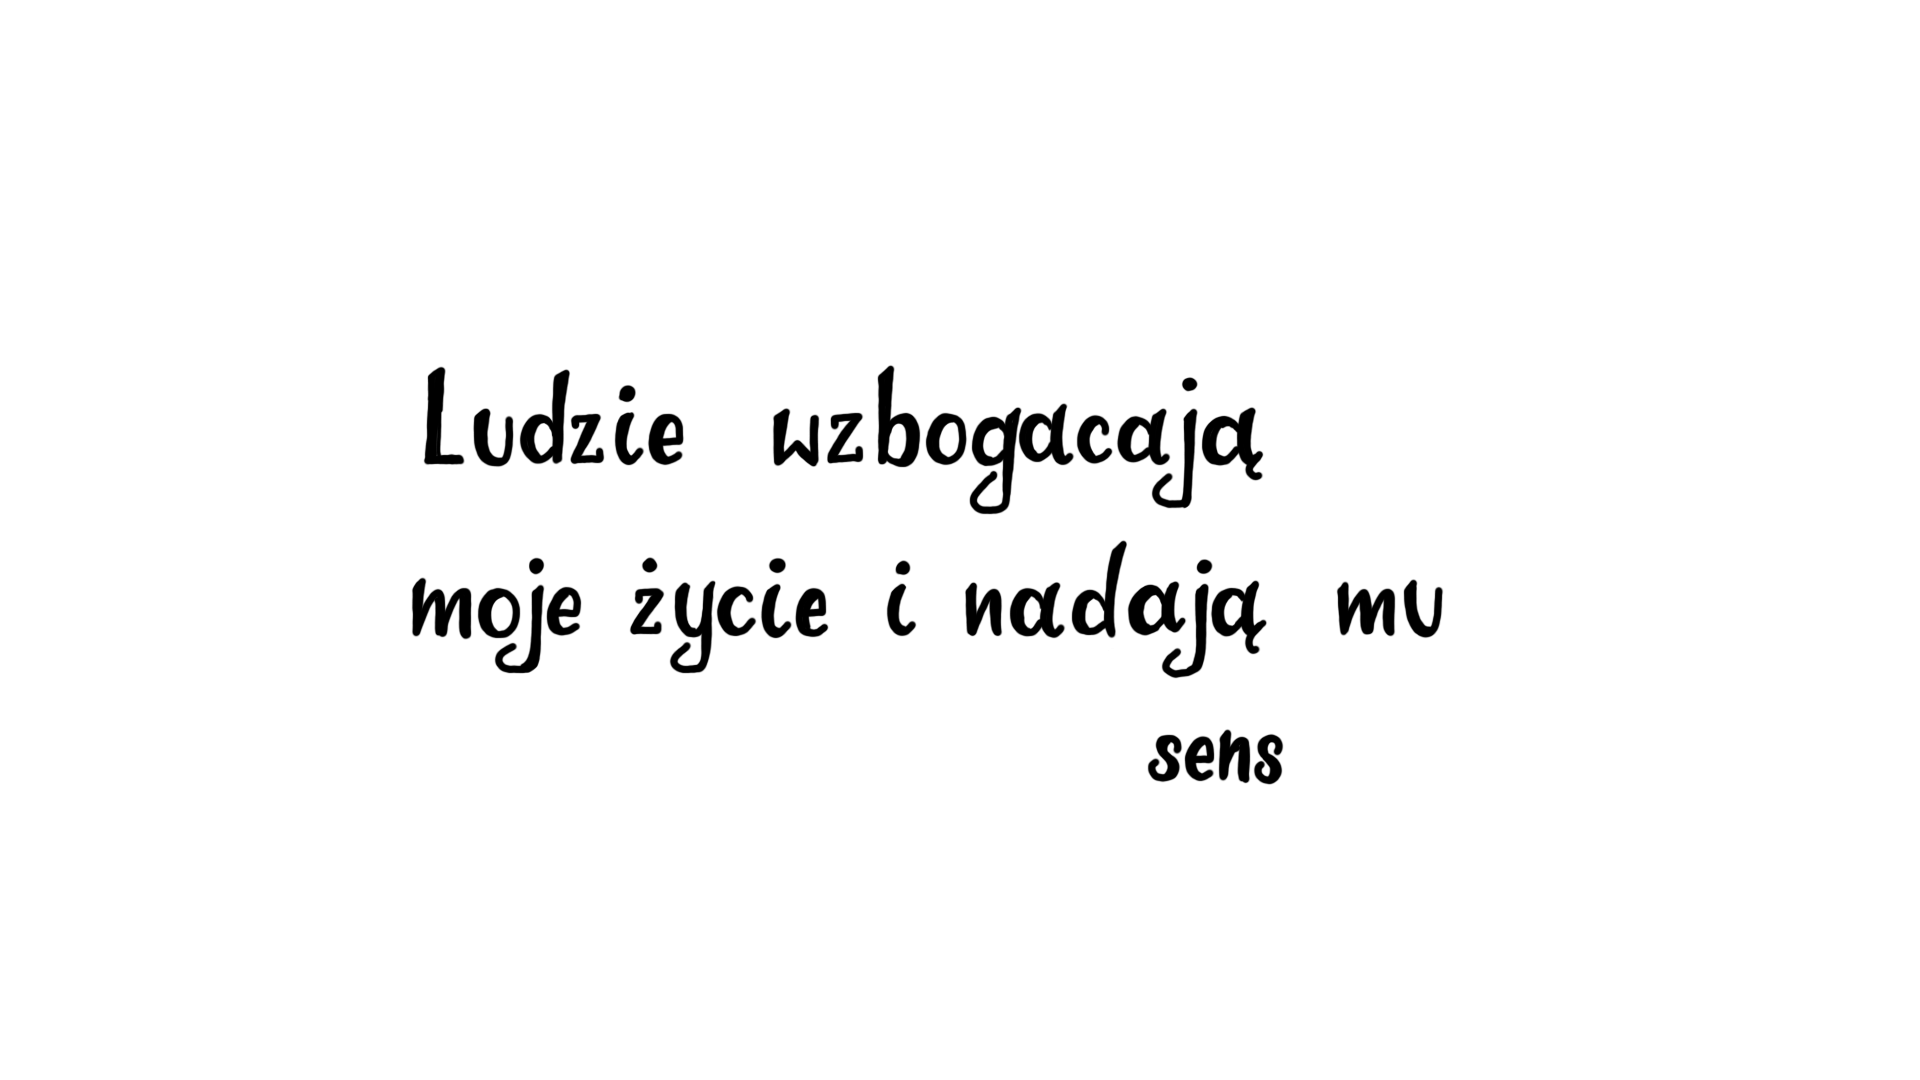 Ludzie wzbogacają
moje życie i nadają mu
sens